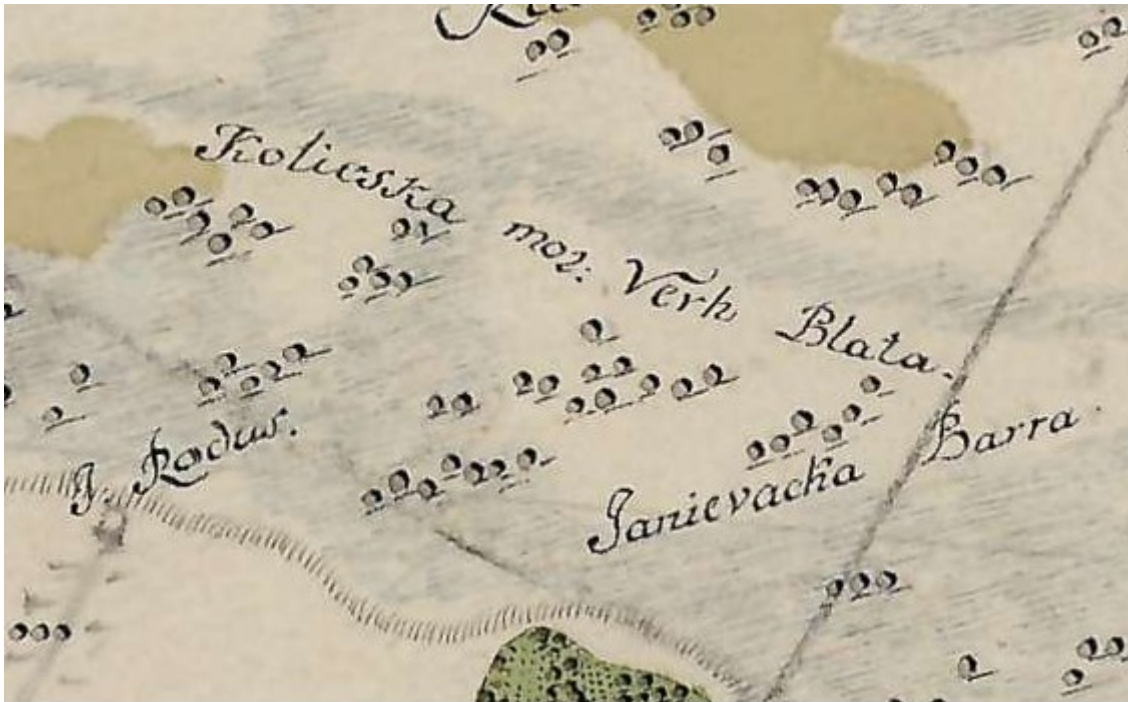 Kolieska moz: Verh Blata.
J. Radus.
Janievacka Barra